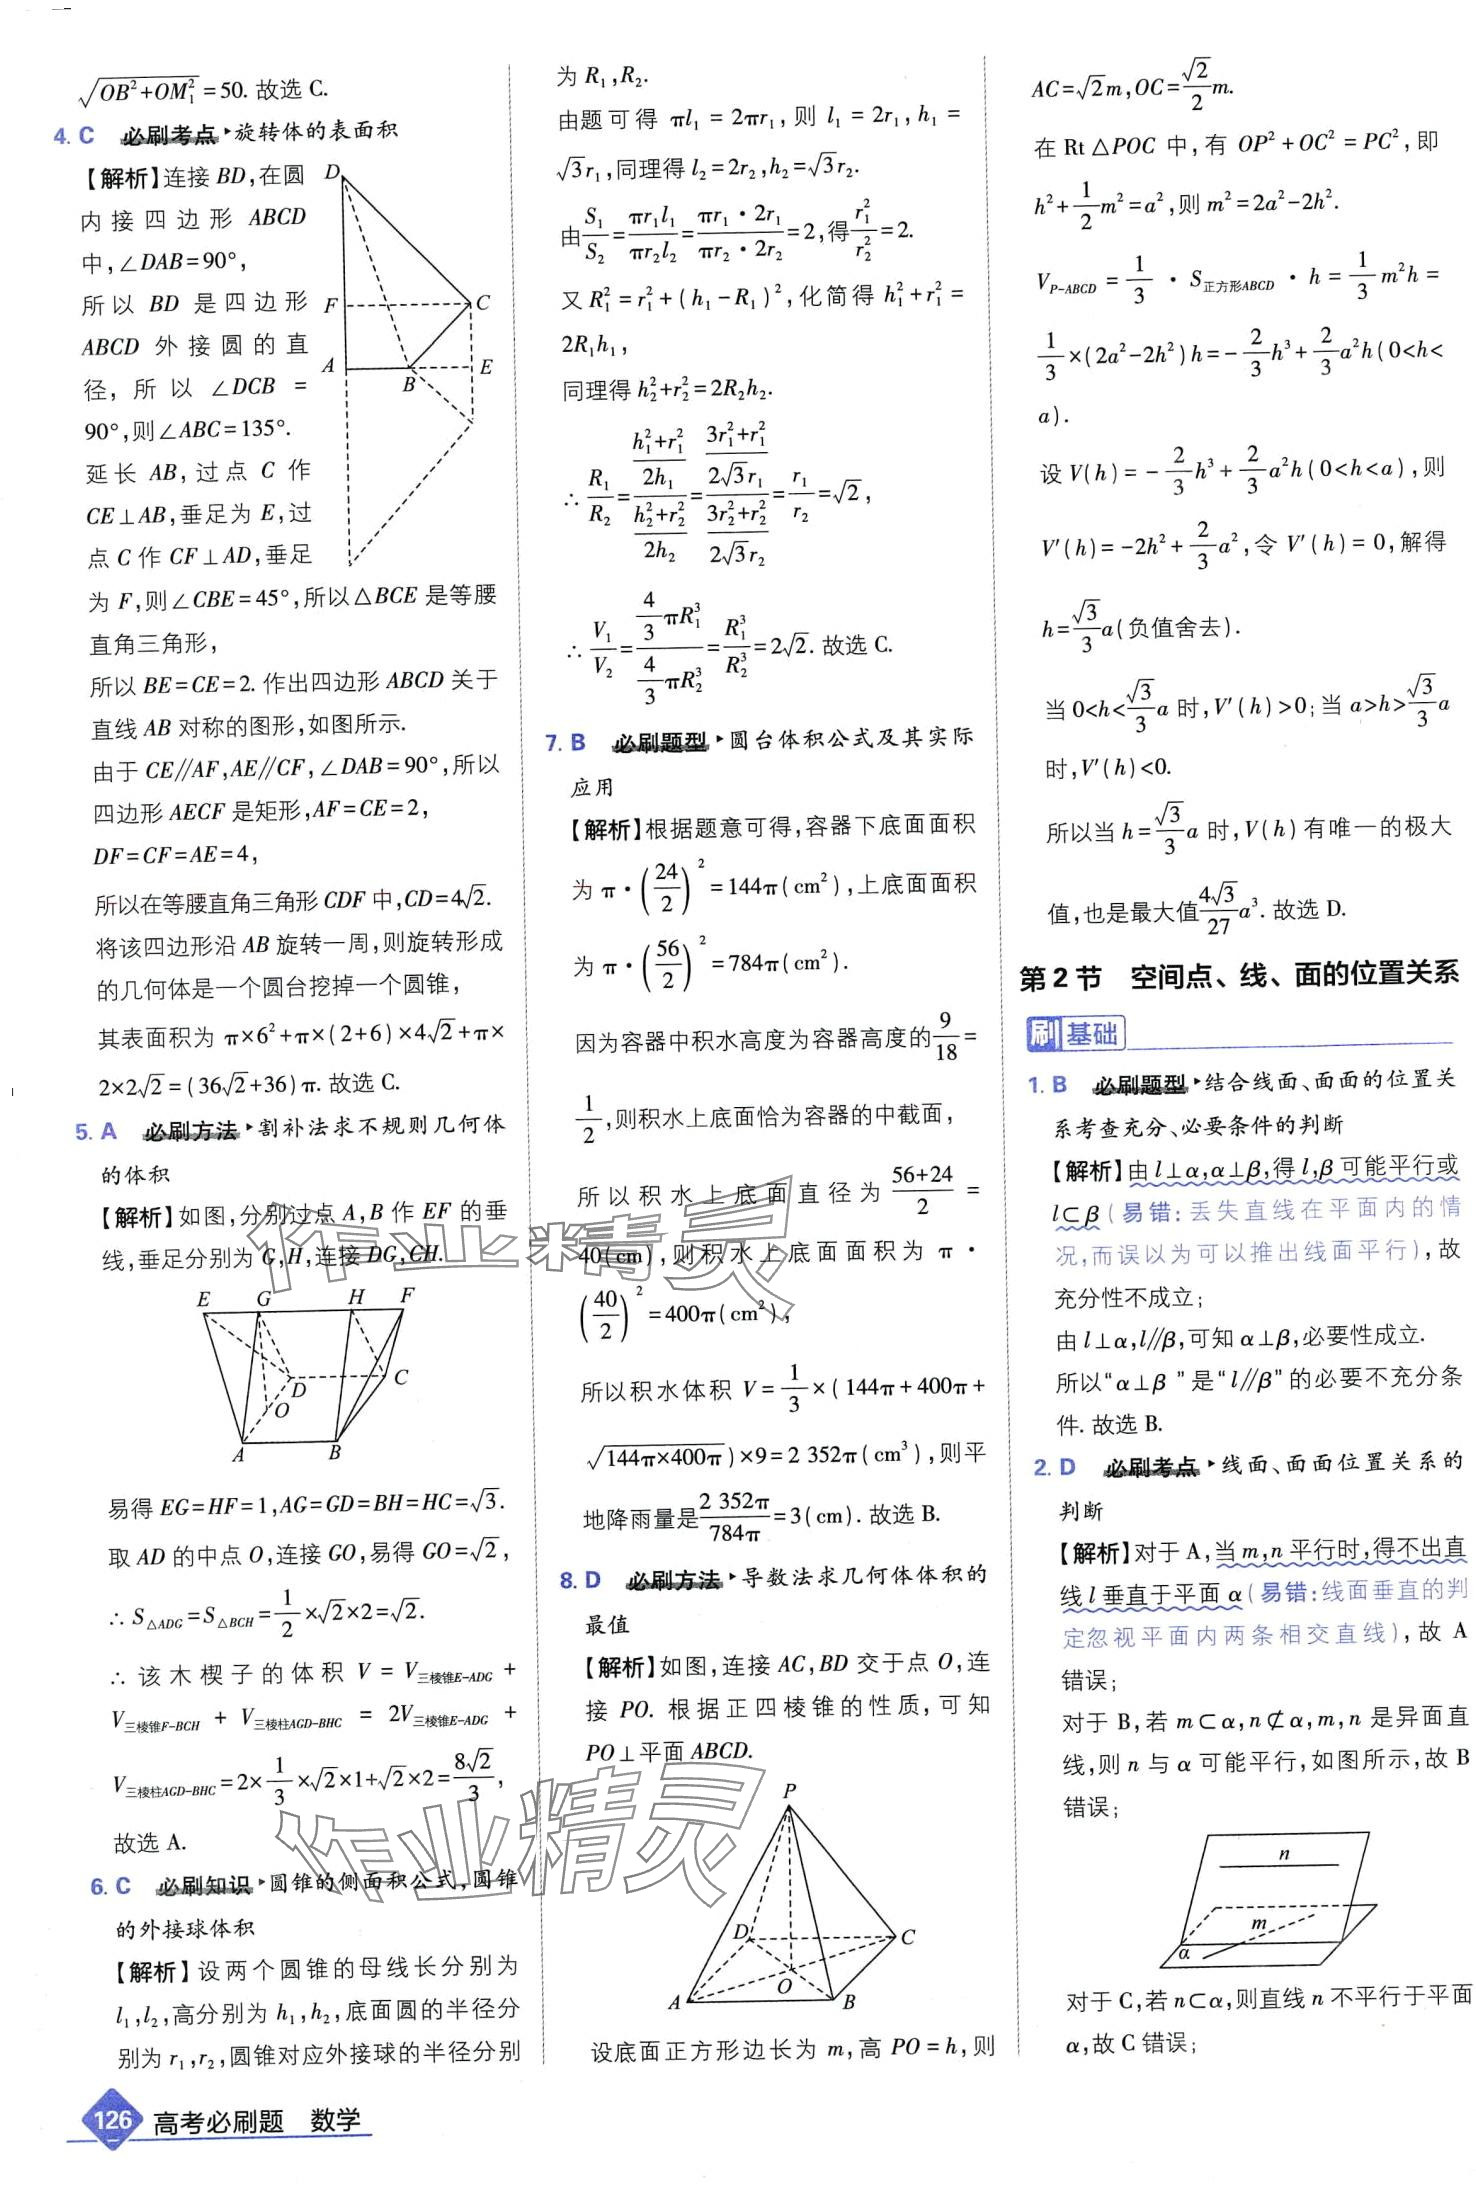 √(OB²+OM₁²)=50. 故选 C.
4. C 必刷考点▸旋转体的表面积
【解析】连接 BD,在圆
内接四边形 ABCD
中,∠DAB=90°,
所以 BD 是四边形
ABCD 外接圆的直
径,所以 ∠DCB =
90°,则∠ABC=135°.
延长 AB,过点 C 作
CE⊥AB,垂足为 E,过
点 C 作 CF⊥AD,垂足
D
F
C
A
B
E
为 F,则∠CBE=45°,所以△BCE 是等腰
直角三角形,
所以 BE=CE=2. 作出四边形 ABCD 关于
直线 AB 对称的图形,如图所示.
由于 CE∥AF,AE∥CF,∠DAB=90°,所以
四边形 AECF 是矩形,AF=CE=2,
DF=CF=AE=4,
所以在等腰直角三角形 CDF 中,CD=4√2.
将该四边形沿 AB 旋转一周,则旋转形成
的几何体是一个圆台挖掉一个圆锥,
其表面积为 π×6²+π×(2+6)×4√2+π×
2×2√2=(36√2+36)π. 故选 C.
5. A 必刷方法▸割补法求不规则几何体
的体积
【解析】如图,分别过点 A,B 作 EF 的垂
线,垂足分别为 G,H,连接 DG,CH.
E G H F
D C
O
A B
易得 EG=HF=1,AG=GD=BH=HC=√3.
取 AD 的中点 O,连接 GO,易得 GO=√2,
∴ S△ADG=S△BCH=1/2×√2×2=√2.
∴ 该木楔子的体积 V = V三棱锥E-ADG +
V三棱锥F-BCH + V三棱柱AGD-BHC = 2V三棱锥E-ADG +
V三棱柱AGD-BHC=2×1/3×√2×1+√2×2=8√2/3,
故选 A.
6. C 必刷知识▸圆锥的侧面积公式,圆锥
的外接球体积
【解析】设两个圆锥的母线长分别为
l₁,l₂,高分别为 h₁,h₂,底面圆的半径分
别为 r₁,r₂,圆锥对应外接球的半径分别
为 R₁,R₂.
由题可得 πl₁=2πr₁,则 l₁=2r₁,h₁=
√3r₁,同理得 l₂=2r₂,h₂=√3r₂.
由S₁/S₂=πr₁l₁/πr₂l₂=(πr₁·2r₁)/(πr₂·2r₂)=2,得r₁²/r₂²=2.
又 R₁²=r₁²+(h₁-R₁)²,化简得 h₁²+r₁²=
2R₁h₁,
同理得 h₂²+r₂²=2R₂h₂.
∴ R₁/R₂=((h₁²+r₁²)/2h₁)/((h₂²+r₂²)/2h₂)=((3r₁²+r₁²)/2√3r₁)/((3r₂²+r₂²)/2√3r₂)=r₁/r₂=√2,
∴ V₁/V₂=(4/3 πR₁³)/(4/3 πR₂³)=R₁³/R₂³=2√2. 故选 C.
7. B 必刷题型▸圆台体积公式及其实际
应用
【解析】根据题意可得,容器下底面面积
为 π·(24/2)²=144π(cm²),上底面面积
为 π·(56/2)²=784π(cm²).
因为容器中积水高度为容器高度的9/18=
1/2,则积水上底面恰为容器的中截面,
所以积水上底面直径为(56+24)/2=
40(cm),则积水上底面面积为 π·
(40/2)²=400π(cm²),
所以积水体积 V=1/3×(144π+400π+
√(144π×400π))×9=2 352π(cm³),则平
地降雨量是2 352π/784π=3(cm). 故选 B.
8. D 必刷方法▸导数法求几何体体积的
最值
【解析】如图,连接 AC,BD 交于点 O,连
接 PO. 根据正四棱锥的性质,可知
PO⊥平面 ABCD.
P
D C
O
A B
设底面正方形边长为 m,高 PO=h,则
AC=√2m,OC=√2/2 m.
在 Rt△POC 中,有 OP²+OC²=PC²,即
h²+1/2 m²=a²,则 m²=2a²-2h².
V_P-ABCD=1/3·S正方形ABCD·h=1/3 m²h=
1/3×(2a²-2h²)h=-2/3 h³+2/3 a²h(0<h<
a).
设 V(h)=-2/3 h³+2/3 a²h(0<h<a),则
V′(h)=-2h²+2/3 a²,令 V′(h)=0,解得
h=√3/3 a(负值舍去).
当 0<h<√3/3 a 时,V′(h)>0;当 a>h>√3/3 a
时,V′(h)<0.
所以当 h=√3/3 a 时,V(h)有唯一的极大
值,也是最大值4√3/27 a³. 故选 D.
第 2 节 空间点、线、面的位置关系
刷 基础
1. B 必刷题型▸结合线面、面面的位置关
系考查充分、必要条件的判断
【解析】由 l⊥α,α⊥β,得 l,β 可能平行或
l⊂β(易错:丢失直线在平面内的情
况,而误以为可以推出线面平行),故
充分性不成立;
由 l⊥α,l∥β,可知 α⊥β,必要性成立.
所以“α⊥β ”是“l∥β”的必要不充分条
件. 故选 B.
2. D 必刷考点▸线面、面面位置关系的
判断
【解析】对于 A,当 m,n 平行时,得不出直
线 l 垂直于平面 α(易错:线面垂直的判
定忽视平面内两条相交直线),故 A
错误;
对于 B,若 m⊂α,n⊄α,m,n 是异面直
线,则 n 与 α 可能平行,如图所示,故 B
错误;
n
m
α
对于 C,若 n⊂α,则直线 n 不平行于平面
α,故 C 错误;
作业精灵
作业精灵
126 高考必刷题 数学